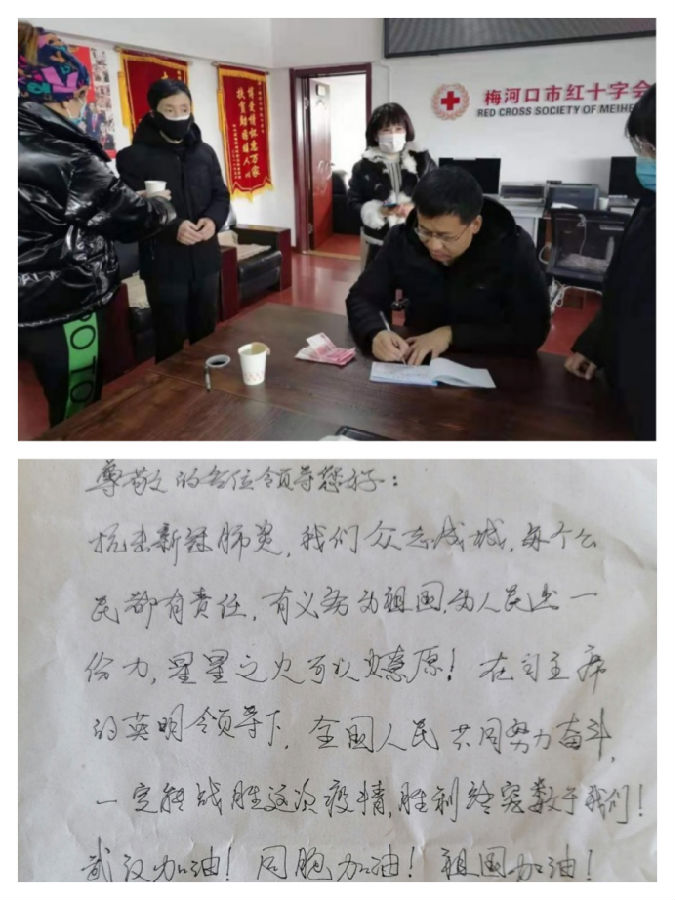 梅河口市红十字会
RED CROSS SOCIETY OF MEIHE
尊敬的各位领导您好：
抗击新冠肺炎，我们众志成城，每个公
民都有责任，有义务为祖国，为人民出一
份力，星星之火可以燎原！在习主席
的英明领导下，全国人民共同努力奋斗，
一定能战胜这次疫情，胜利终究数于我们！
武汉加油！同胞加油！祖国加油！